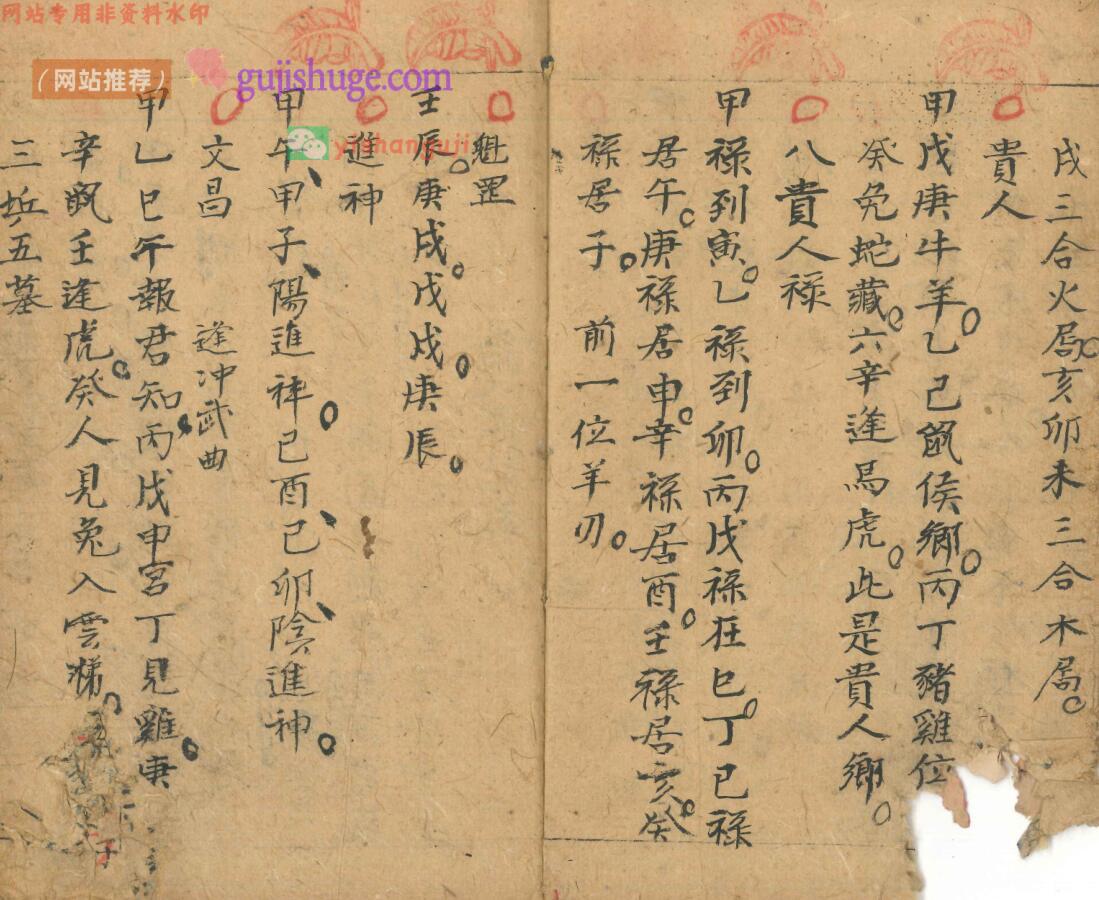 网站专用非资料水印
(网站推荐)
gujishuge.com
yishanguji
戌三合火局亥卯未三合木局
貴人
甲戊庚牛羊乙己鼠侯鄉丙丁豬雞位
癸兔蛇藏六辛逢馬虎此是貴人鄉
八貴人祿
甲祿到寅乙祿到卯丙戊祿在巳丁己祿
居午庚祿居申辛祿居酉壬祿居亥癸
祿居子 前一位羊刃
魁罡
壬辰庚戌戊戌庚辰
進神
甲午甲子陽進神己酉己卯陰進神
文昌 逢冲武曲
甲乙巳午報君知丙戊申宮丁見雞庚
辛鼠壬逢虎癸人見兔入雲梯
三坵五墓